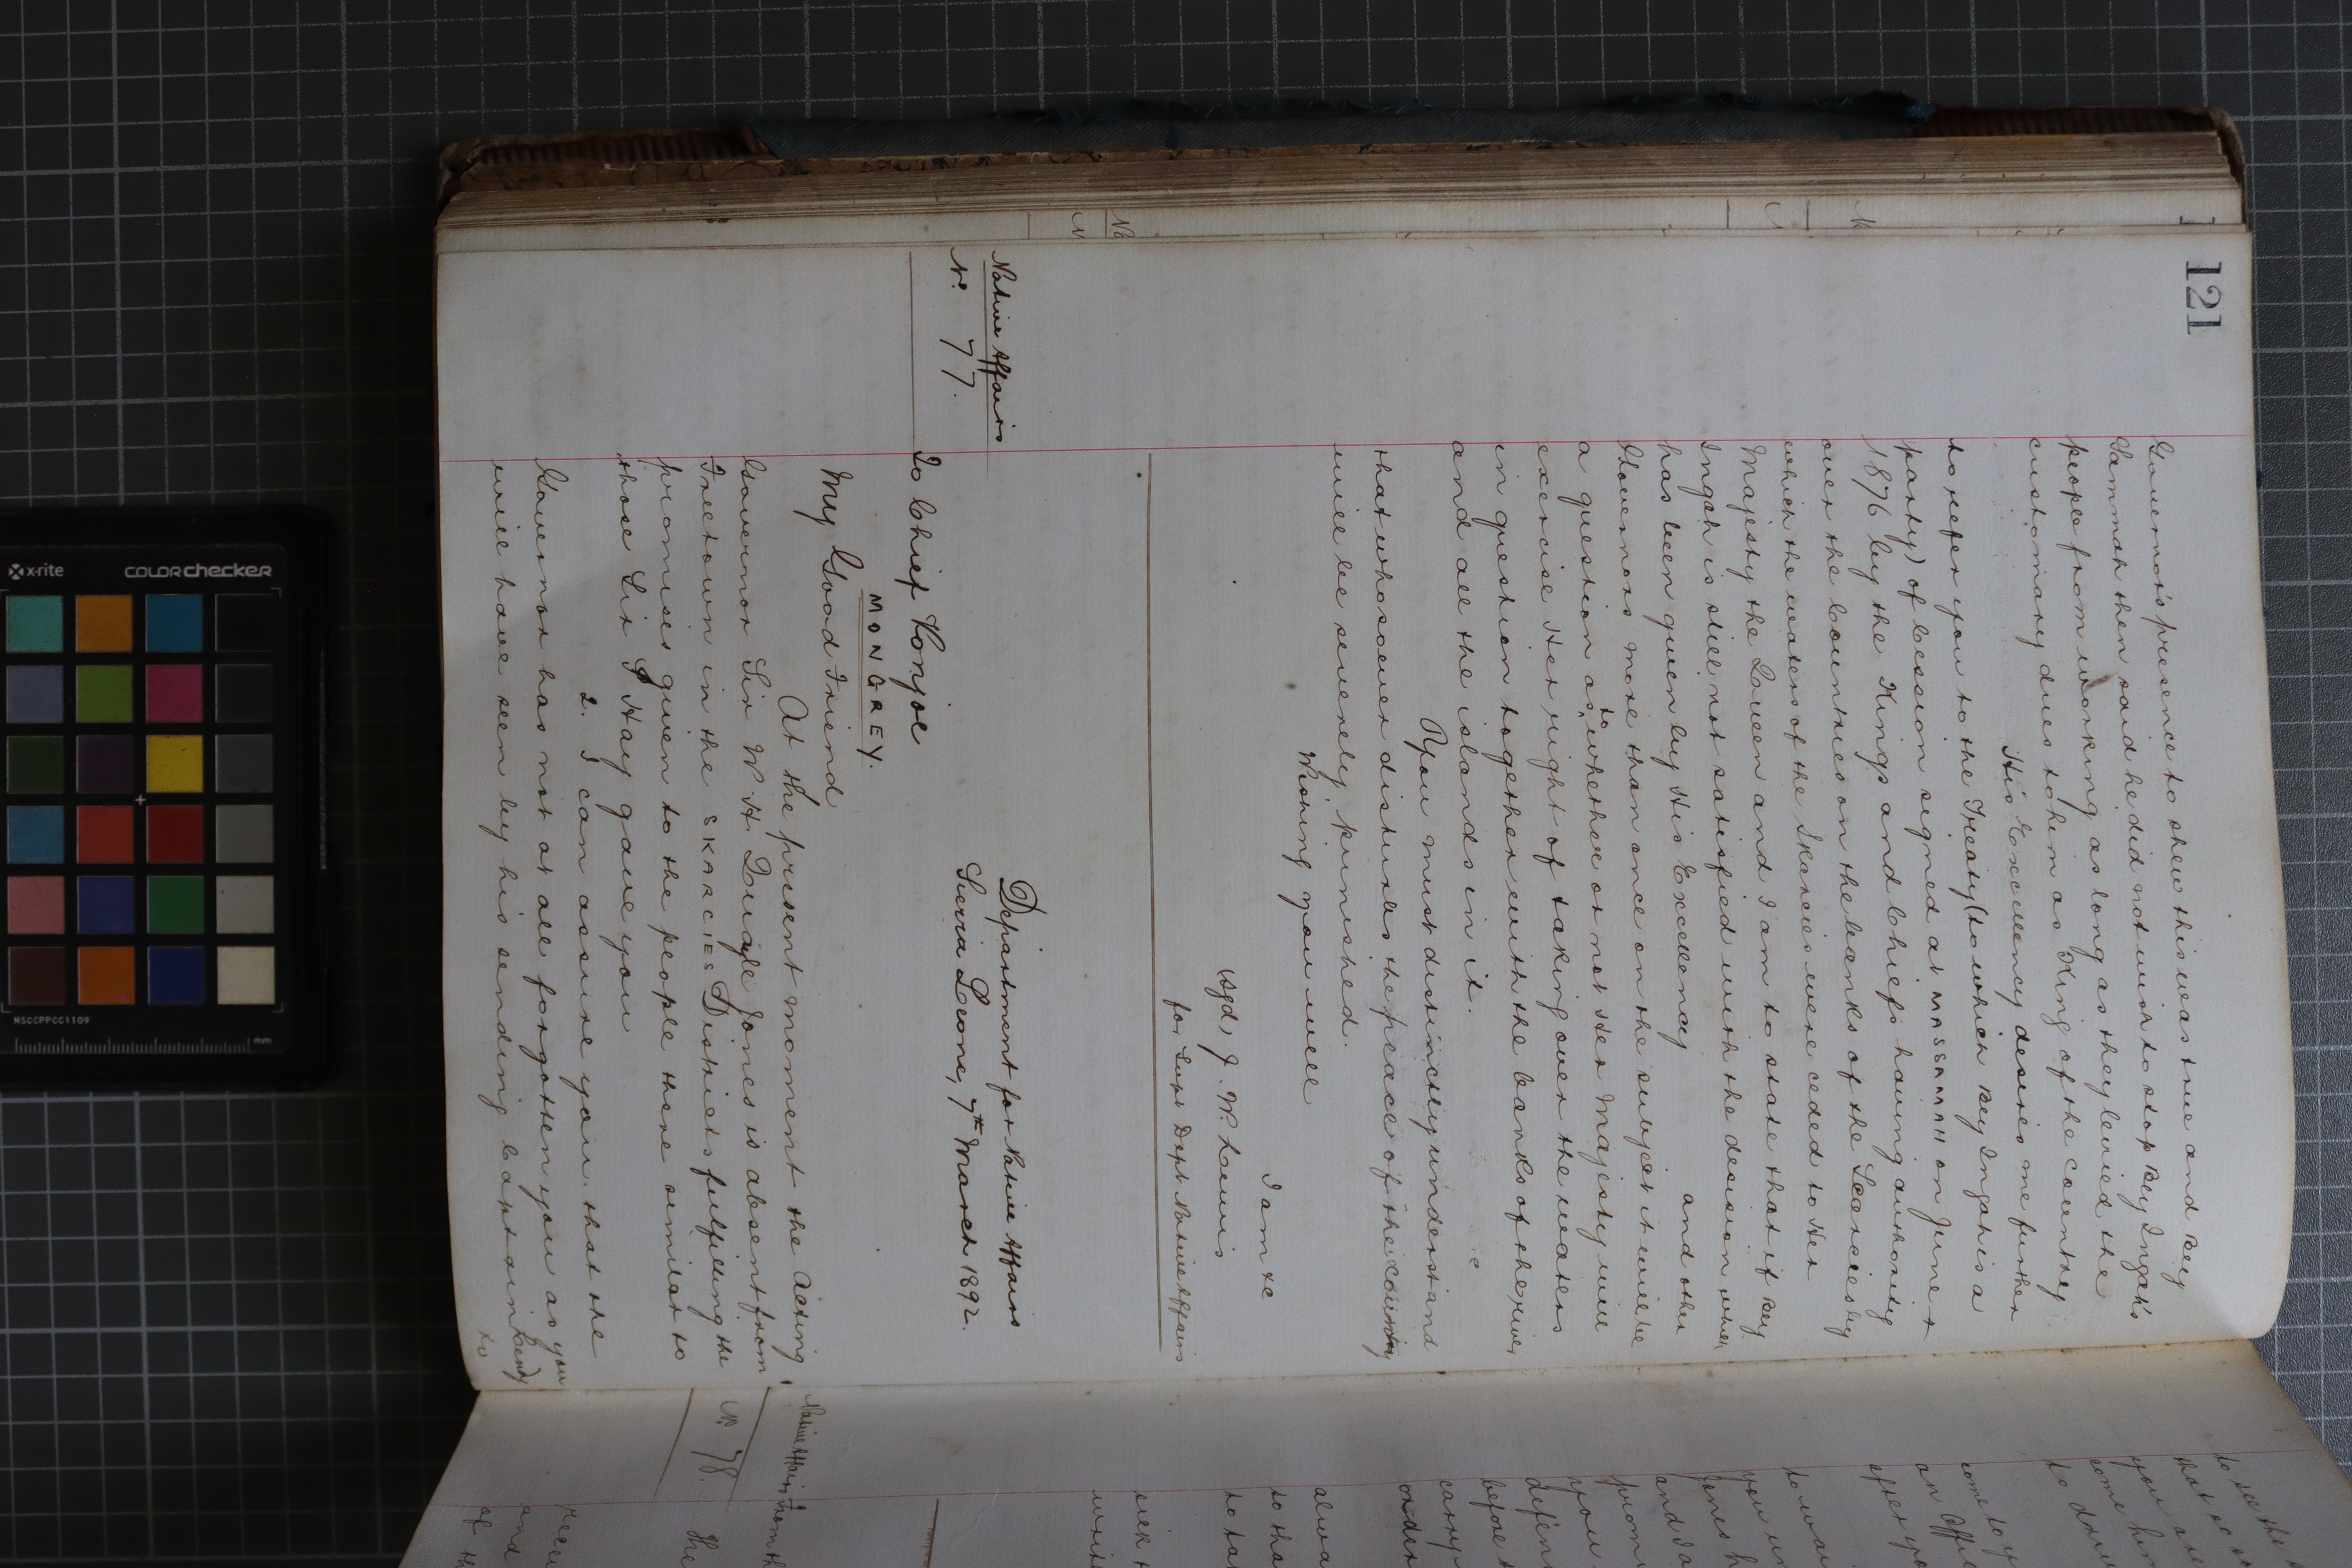 121
Governor's presence to shew this was true and Bey
Sammah then said he did not wish to stop Bey Ingah's
people from working as long as they levied the
customary dues to him as King of the country
His Excellency desires me further
to refer you to the Treaty (to which Bey Ingah is a
party) of Cession signed at MASSAMAH on June
1876 by the Kings and Chiefs having authority
over the Countries on the banks of the Scarcies by
which the waters of the Skarcies were ceded to Her
Majesty the Queen and I am to state that if Bey
Ingah is still not satisfied with the decision which
has been given by His Excellency and other
Governors more than once on the subject it will be
a question as to whether or not Her Majesty will
exercise Her right of taking over the waters
in question together with the banks of the river
and all the islands in it.
You must distinctly understand
that whosoever disturbs the peace of the country
will be severely punished.
Wishing you well
I am &c
(sgd) J. W. Lewis
for Supt Dept Native Affairs
Native Affairs
No. 77.
Department for Native Affairs
Sierra Leone, 7th March 1892.
To Chief Konjoe
MONGREY.
My Good Friend
At the present moment the Acting
Governor Sir W. H. Quayle Jones is absent from
Freetown in the SKARCIES Districts fulfilling the
promises given to the people there similar to
those Sir J Hay gave you
2. I can assure you that the
Governor has not at all forgotten you as you
will have seen by his sending Captain Lendy
to
Native Affairs
No. 78.
From th
The
recei
and
of th
to see the
that
you a
come her
to do
come to y
an Offic
after yo
to wa
your
Jones h
and
prom
you
defen
before
carry
order
alwa
to tha
to ta
seek